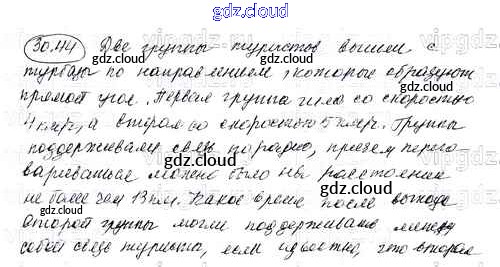 gdz.cloud
30.44 Две группы туристов вышли с
турбазы по направлениям, которые образуют
прямой угол. Первая группа шла со скоростью
4 км/ч, а вторая со скоростью 5 км/ч. Группы
поддерживали связь по радио, причем перего-
вариваться можно было на расстоянии
не более чем 13 км. Какое время после выхода
второй группы могли поддерживать между
собой связь туристы, если известно, что вторая